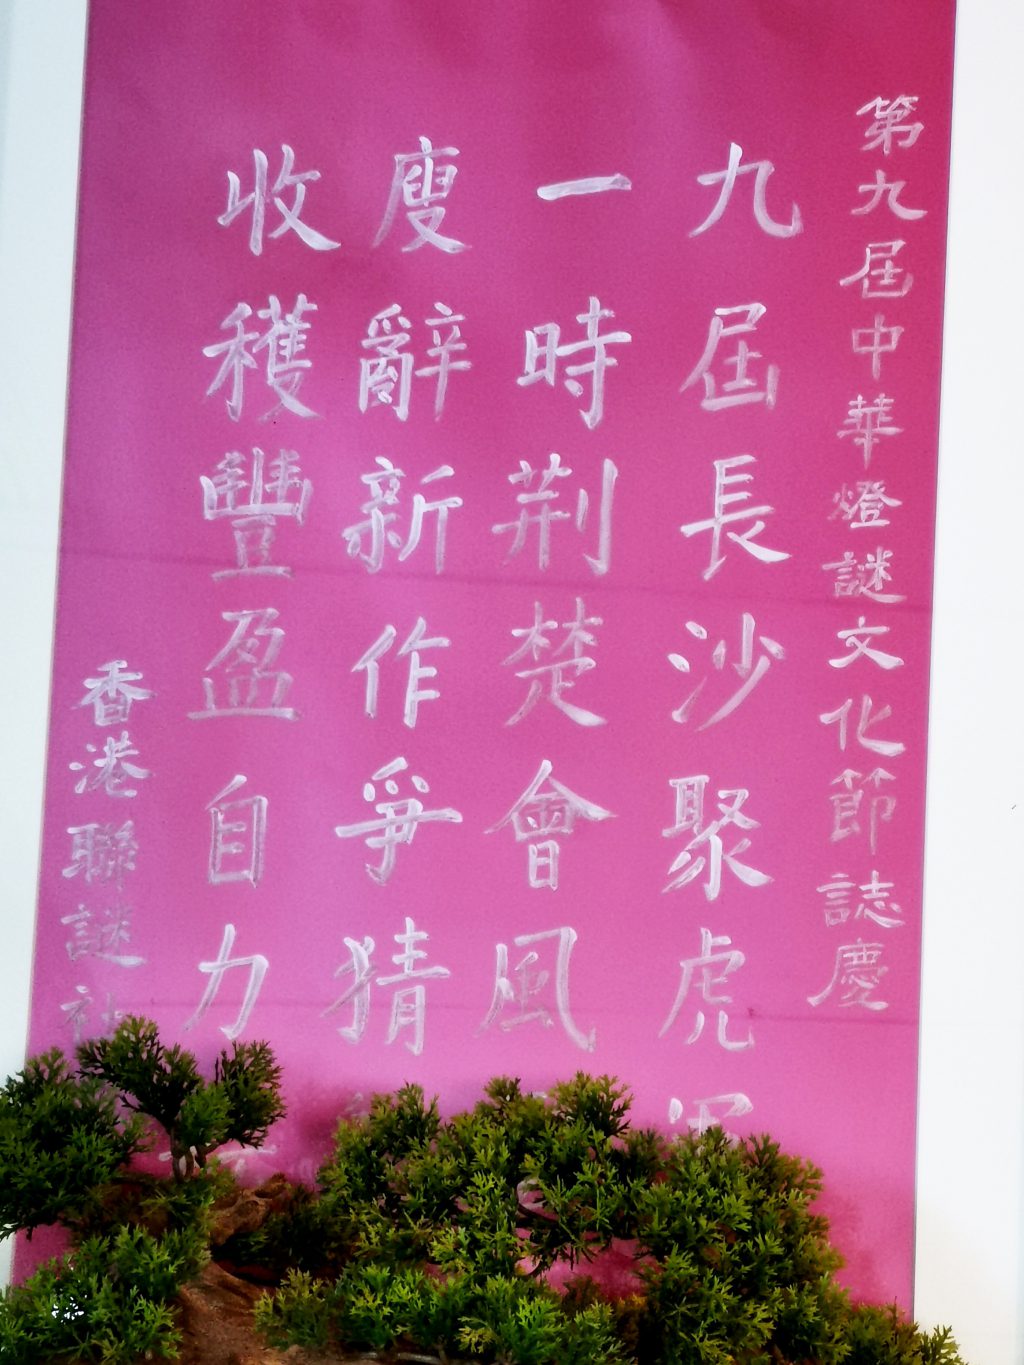 第九屆中華燈謎文化節誌慶
九屆長沙聚虎
一時荆楚會風
廋辭新作爭猜
收穫豐盈自力
香港聯謎社